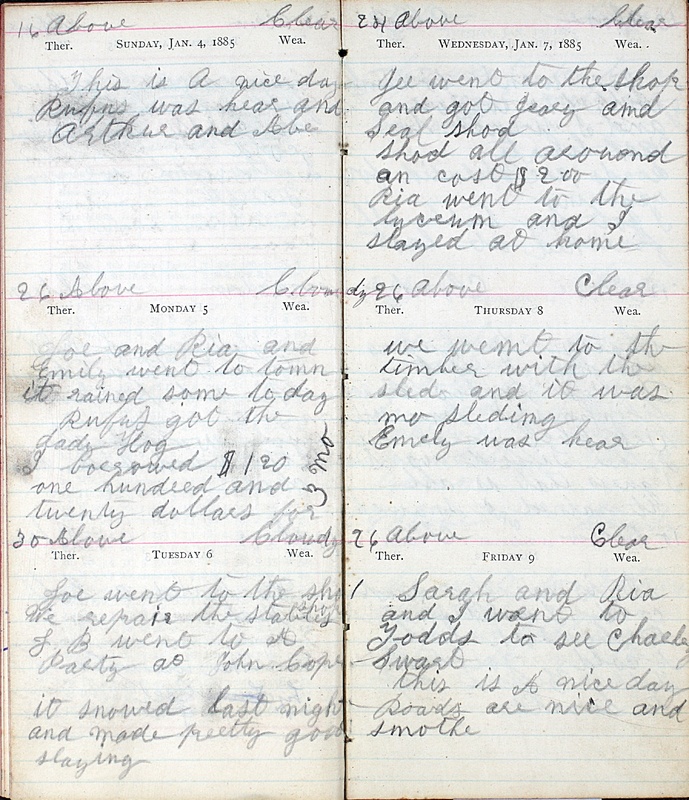 16 Above Clear
Ther. SUNDAY, JAN. 4, 1885 Wea.
This is A nice day
Rufus was hear and
Arthur and Abe
26 Above Cloudy
Ther. MONDAY 5 Wea.
Joe and Ria and
Emily went to tomn
it rained some to day
Rufus got the
Lady Hog
I borrowed $120
one hundred and
twenty dollars for
3 mo
30 Above Cloudy
Ther. TUESDAY 6 Wea.
Joe went to the shop
We repair the stables
J, B went to A
Party at John Cope
it snowed last night
and made pretty good
slaying
24 Above Clear
Ther. WEDNESDAY, JAN. 7, 1885 Wea.
Joe went to the shop
and got and
Seal shod
shod all arouond
an cost $2.00
Ria went to the
lyceum and I
stayed at home
26 above Clear
Ther. THURSDAY 8 Wea.
we went to the
timber with the
sled and it was
mo sleding
Emely was hear
26 Above Clear
Ther. FRIDAY 9 Wea.
1 Sarah and Ria
and I want to
Todds to see Charley
Swart
this is A nice day
Roads are nice and
smothe